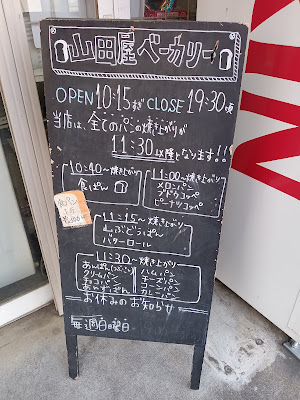 山田屋ベーカリー
OPEN10:15ごろ CLOSE 19:30頃
当店は、全てのパンの焼き上がりが
11:30以降となります!!
10:40〜焼き上がり
食ぱん
11:00〜焼き上がり
メロンパン
ブドウコッペ
ピーナツコッペ
11:15〜焼き上がり
ぶどうぱん
バターロール
11:30〜焼き上がり
あんぱん
クリームパン
チョコパン
ハムパン
チーズパン
コーンパン
カレーパン
お休みのお知らせ
毎週日曜日